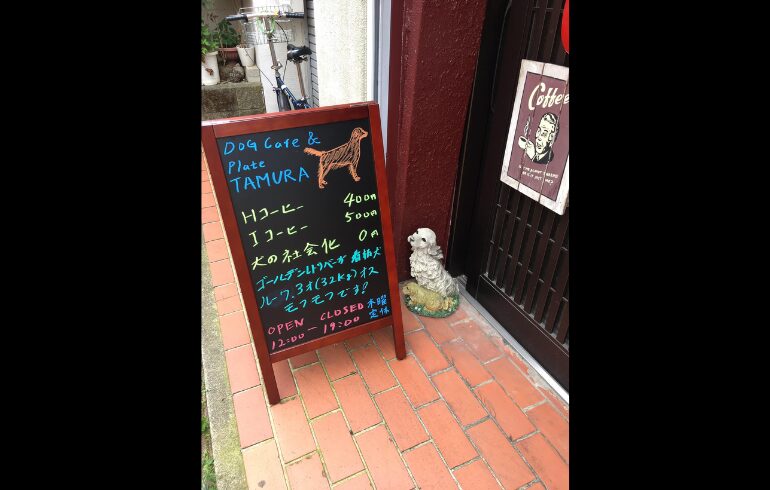 DOG Cafe &
Plate
TAMURA
Hコーヒー 400円
Iコーヒー 500円
犬の社会化 0円
ゴールデンレトリバーが看板犬
ルーク.3才(32kg)オス
モフモフです!
OPEN CLOSED
12:00-19:00
水曜
定休
Coffee